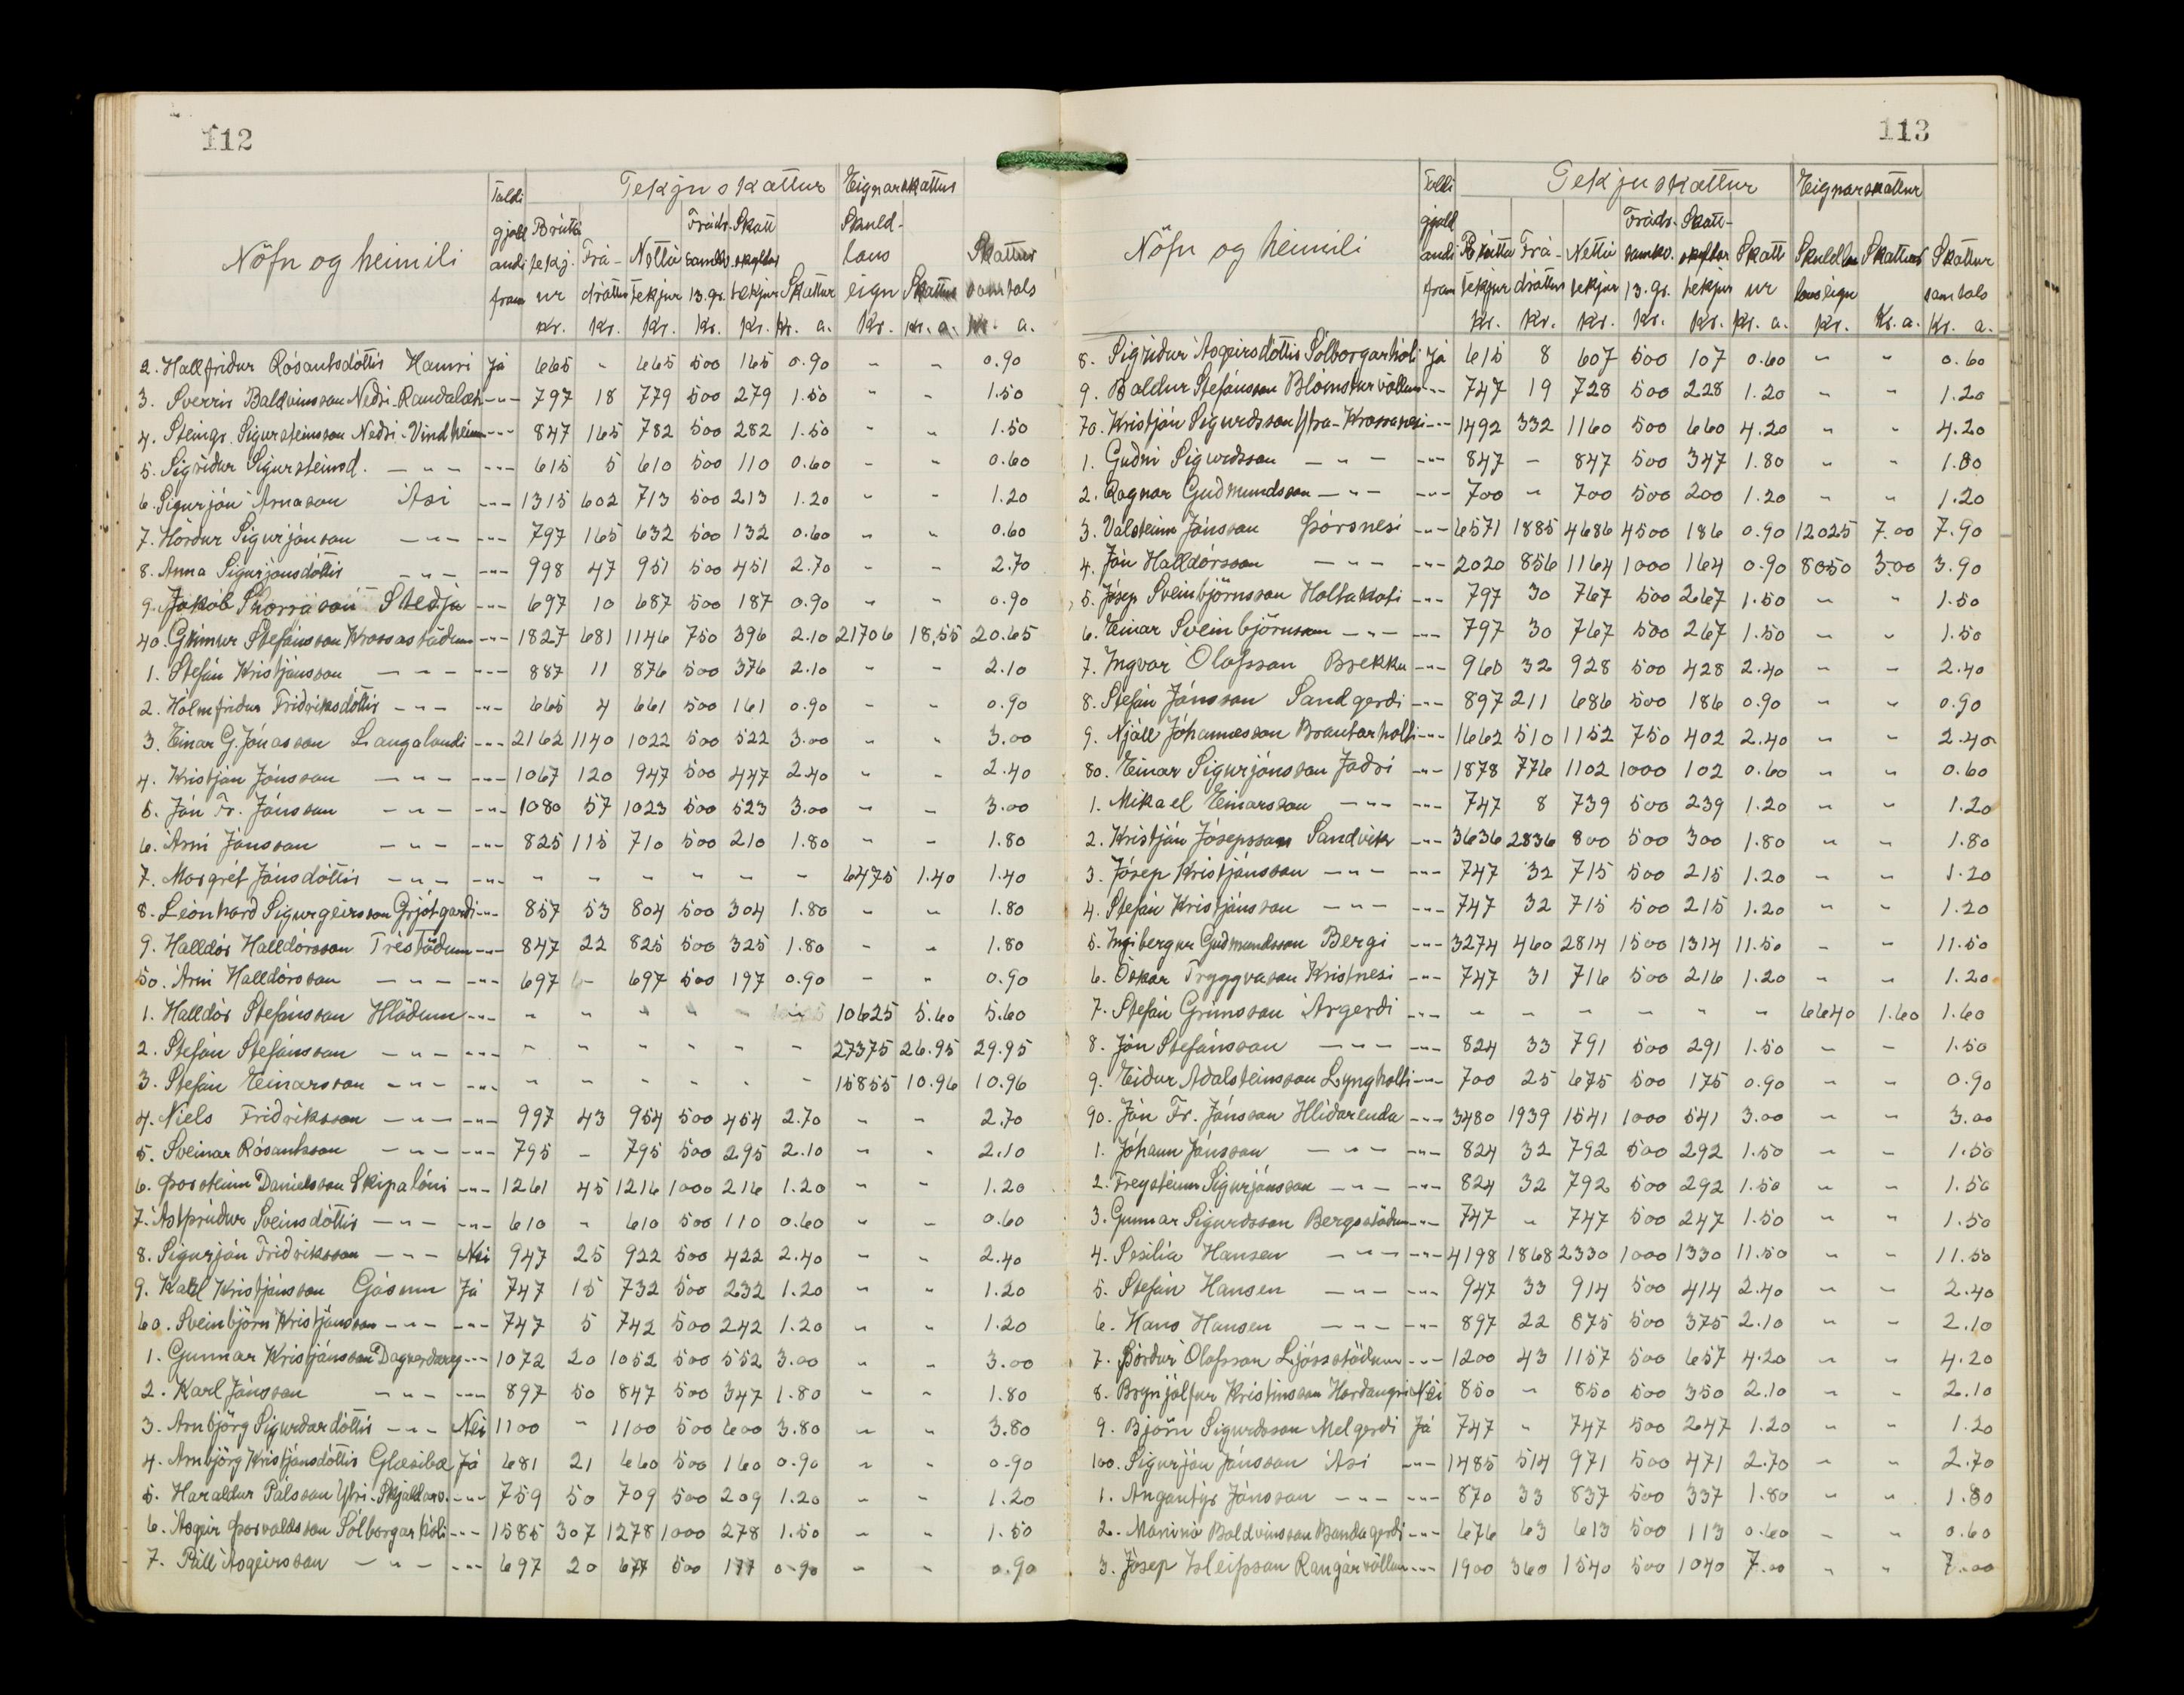 112
Taldi gjald andi fram
Tekjuskattur
Eignarskattur
Nöfn og heimili
Brúttó tekjur Kr.
Frá-dráttur Kr.
Nettó tekjur Kr.
Frádr. samkv. 13. gr. Kr.
Skatt skyldar tekjur Kr.
Skattur Kr. a.
Skuld-laus eign Kr.
Skattur Kr. a.
Skattur samtals Kr. a.
2. Hallfríður Rósantsdóttir Hamri Já 665 - 665 500 165 0.90 - - 0.90
3. Sverrir Baldvinsson Neðri-Rauðalæk -"- 797 18 779 500 279 1.50 " " 1.50
4. Steingr. Sigursteinsson Neðri-Vindheim -"- 847 165 782 500 282 1.50 " " 1.50
5. Sigríður Sigursteinsd. -"- -"- 615 5 610 500 110 0.60 " " 0.60
6. Sigurjón Árnason Ási -"- 1315 602 713 500 213 1.20 " " 1.20
7. Hörður Sigurjónsson -"- -"- 797 165 632 500 132 0.60 " " 0.60
8. Anna Sigurjónsdóttir -"- -"- 998 47 951 500 451 2.70 - - 2.70
9. Jakob Snorrason Steðja -"- 697 10 687 500 187 0.90 " " 0.90
40. Grímur Stefánsson Krossastöðum -"- 1827 681 1146 750 396 2.10 21706 18,55 20.65
1. Stefán Kristjánsson -"- -"- 887 11 876 500 376 2.10 " " 2.10
2. Hólmfríður Friðriksdóttir -"- -"- 665 4 661 500 161 0.90 - - 0.90
3. Einar G. Jónasson Laugalandi -"- 2162 1140 1022 500 522 3.00 " " 3.00
4. Kristján Jónsson -"- -"- 1067 120 947 500 447 2.40 " " 2.40
5. Jón Fr. Jónsson -"- -"- 1080 57 1023 500 523 3.00 - - 3.00
6. Árni Jónsson -"- -"- 825 115 710 500 210 1.80 " - 1.80
7. Margrét Jónsdóttir -"- -"- - - - " - - 6475 1.40 1.40
8. Leonhard Sigurgeirsson Grjótgarði -"- 857 53 804 500 304 1.80 - " 1.80
9. Halldór Halldórsson Tréstöðum -"- 847 22 825 500 325 1.80 - " 1.80
50. Árni Halldórsson -"- -"- 697 - 697 500 197 0.90 - " 0.90
1. Halldór Stefánsson Hlöðum -"- " " " " - - 10625 5.60 5.60
2. Stefán Stefánsson -"- -"- " - " " - - 27375 26.95 29.95
3. Stefán Einarsson -"- -"- " " " " " - 15855 10.96 10.96
4. Niels Friðriksson -"- -"- 997 43 954 500 454 2.70 - - 2.70
5. Sveinar Rósantsson -"- -"- 795 - 795 500 295 2.10 " " 2.10
6. Þorsteinn Daníelsson Skipalóni -"- 1261 45 1216 1000 216 1.20 " " 1.20
7. Ástþrúður Sveinsdóttir -"- -"- 610 " 610 500 110 0.60 " " 0.60
8. Sigurjón Friðriksson -"- Nei 947 25 922 500 422 2.40 " " 2.40
9. Karl Kristjánsson Gásum Já 747 15 732 500 232 1.20 " " 1.20
60. Sveinbjörn Kristjánsson -"- -"- 747 5 742 500 242 1.20 " " 1.20
1. Gunnar Kristjánsson Dagverðarey -"- 1072 20 1052 500 552 3.00 " " 3.00
2. Karl Jónsson -"- -"- 897 50 847 500 347 1.80 " " 1.80
3. Arnbjörg Sigurðardóttir -"- Nei 1100 " 1100 500 600 3.80 " " 3.80
4. Arnbjörg Kristjánsdóttir Glæsibæ Já 681 21 660 500 160 0.90 " " 0.90
5. Haraldur Pálsson Ytri-Skjaldarv. -"- 759 50 709 500 209 1.20 " " 1.20
6. Ásgeir Þorvaldsson Sólborgarhóli -"- 1585 307 1278 1000 278 1.50 " " 1.50
7. Páll Ásgeirsson -"- -"- 697 20 677 500 177 0.90 " " 0.90
113
Taldi gjald andi fram
Tekjuskattur
Eignarskattur
Nöfn og heimili
Brúttó tekjur Kr.
Frá-dráttur Kr.
Nettó tekjur Kr.
Frádr. samkv. 13. gr. Kr.
Skatt-skyldar tekjur Kr.
Skattur Kr. a.
Skuldlaus eign Kr.
Skattur Kr. a.
Skattur samtals Kr. a.
8. Sigríður Ásgeirsdóttir Sólborgarhóli Já 615 8 607 500 107 0.60 " " 0.60
9. Baldur Stefánsson Blómsturvöllum -"- 747 19 728 500 228 1.20 " " 1.20
70. Kristján Sigurðsson Ytra-Krossanesi -"- 1492 332 1160 500 660 4.20 " " 4.20
1. Guðni Sigurðsson -"- -"- 847 - 847 500 347 1.80 " " 1.80
2. Ragnar Guðmundsson -"- -"- 700 " 700 500 200 1.20 " " 1.20
3. Valsteinn Jónsson Þórsnesi -"- 6571 1885 4686 4500 186 0.90 12025 7.00 7.90
4. Jón Halldórsson -"- -"- 2020 856 1164 1000 164 0.90 8050 3.00 3.90
5. Jósep Sveinbjörnsson Holtakoti -"- 797 30 767 500 267 1.50 " " 1.50
6. Einar Sveinbjörnsson -"- -"- 797 30 767 500 267 1.50 " " 1.50
7. Ingvar Ólafsson Brekku -"- 960 32 928 500 428 2.40 " " 2.40
8. Stefán Jónsson Sandgerði -"- 897 211 686 500 186 0.90 " " 0.90
9. Njáll Jóhannesson Brautarholti -"- 1662 510 1152 750 402 2.40 " " 2.40
80. Einar Sigurjónsson Jaðri -"- 1878 776 1102 1000 102 0.60 " " 0.60
1. Mikael Einarsson -"- -"- 747 8 739 500 239 1.20 " " 1.20
2. Kristján Jósepsson Sandvík -"- 3636 2836 800 500 300 1.80 " " 1.80
3. Jósep Kristjánsson -"- -"- 747 32 715 500 215 1.20 " " 1.20
4. Stefán Kristjánsson -"- -"- 747 32 715 500 215 1.20 " " 1.20
5. Ingibergur Guðmundsson Bergi -"- 3274 460 2814 1500 1314 11.50 - " 11.50
6. Óskar Tryggvason Kristnesi -"- 747 31 716 500 216 1.20 " " 1.20
7. Stefán Grímsson Árgerði -"- - - - - " - 6640 1.60 1.60
8. Jón Stefánsson -"- -"- 824 33 791 500 291 1.50 - - 1.50
9. Eiður Aðalsteinsson Lyngholti -"- 700 25 675 500 175 0.90 " " 0.90
90. Jón Fr. Jónsson Hlíðarenda -"- 3480 1939 1541 1000 541 3.00 " " 3.00
1. Jóhann Jónsson -"- -"- 824 32 792 500 292 1.50 " " 1.50
2. Freysteinn Sigurjónsson -"- -"- 824 32 792 500 292 1.50 " " 1.50
3. Gunnar Sigurðsson Bergsstöðum -"- 747 " 747 500 247 1.50 " " 1.50
4. Sesilía Hansen -"- -"- 4198 1868 2330 1000 1330 11.50 " " 11.50
5. Stefán Hansen -"- -"- 947 33 914 500 414 2.40 " " 2.40
6. Hans Hansen -"- -"- 897 22 875 500 375 2.10 " " 2.10
7. Þórður Ólafsson Ljósstöðum -"- 1200 43 1157 500 657 4.20 " " 4.20
8. Brynjólfur Kristinsson Harðangri Nei 850 " 850 500 350 2.10 " " 2.10
9. Björn Sigurðsson Melgerði Já 747 " 747 500 247 1.20 " " 1.20
100. Sigurjón Jónsson Ási -"- 1485 514 971 500 471 2.70 " " 2.70
1. Angantýr Jónsson -"- -"- 870 33 837 500 337 1.80 " " 1.80
2. Marinó Baldvinsson Bandagerði -"- 676 63 613 500 113 0.60 " " 0.60
3. Jósep Ísleifsson Rangárvöllum -"- 1900 360 1540 500 1040 7.00 " " 7.00